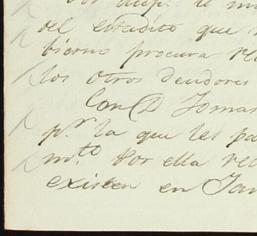 por
del expedito que
bierno procura re
los otros deudores
Con D Tomas
p.r la que les pa
m.to Por ella re
existen en Jan